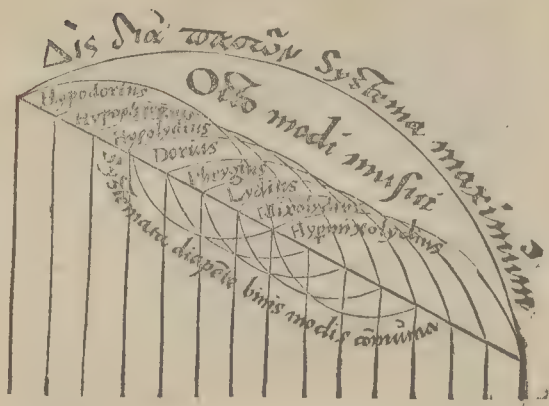 Δὶς διὰ πασῶν Systema maximũm
Octo modi musici
Hypodorius
Hypophrygius
Hypolydius
Dorius
Phrygius
Lydius
Mixolydius
Hypermixolydius
Systemata diapẽte binis modis cõmũnia